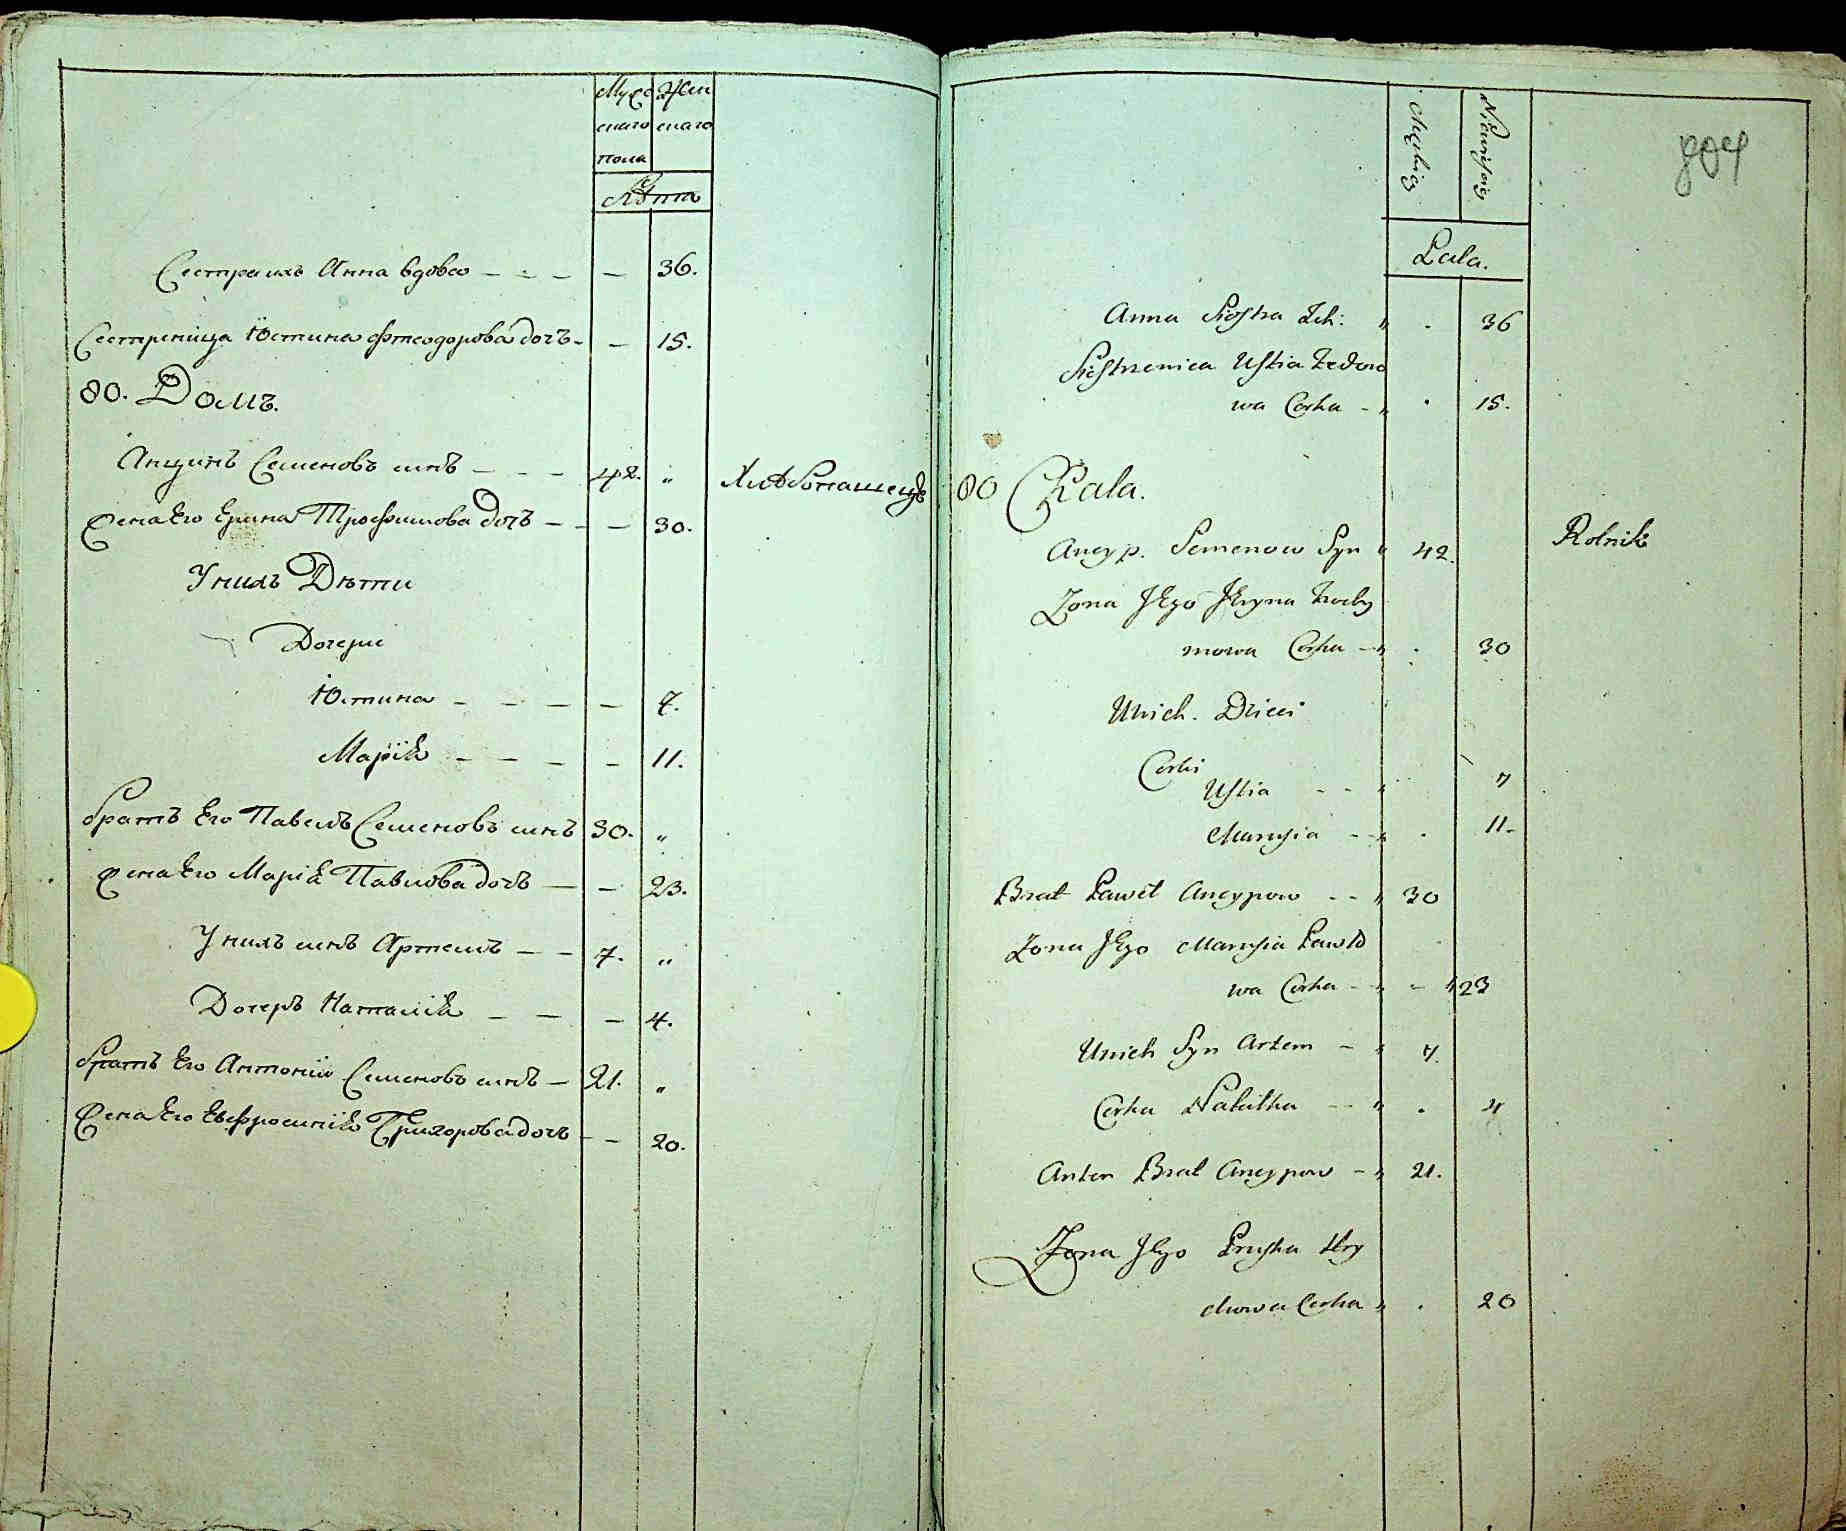 Мужс Жен
скаго скаго
пола
Лѣта
Сестра ихъ Анна вдова - - - — 36.
Сестреница Юстина Фтеодорова дочь - — 15.
80. Домъ.
Анципъ Семеновъ сынъ - - - 42. „ Хлѣбопашецъ
Жена Его Ерина Трофимова дочь - - — 30.
У нихъ Дѣти
Дочери
Юстина - - - — 7.
Марія - - - — 11.
братъ Его Павелъ Семеновъ сынъ 30. „
Жена Его Марія Павлова дочь — — 23.
У нихъ сынъ Артемъ - - 7. „
Дочерь Наталія - - — 4.
братъ Его Антоній Семеновъ сынъ - 21. „
Жена Его Евфросинія Григорова дочь - — 20.
804
Męskiey Niewiesciey
Lata.
Anna Siostra Ich: „ . 36
Siestrzenica Ustia Fedoro
wa Corka - „ . 15.
80 Chala.
Ancyp. Semenow Syn „ 42. Rolnik
Zona Jego Jryna Trochy
mowa Corka - „ . 30
Unich. Dzieci
Corki
Ustia - - „ 7
Marysia - - „ . 11.
Brat Paweł Ancypow - - „ 30
Zona Jego Marysia Pawło
wa Corka - „ - 23
Unich Syn Artem - „ 7.
Corka Nałałka - - „ . 4
Anton Brat Ancypow - „ 21.
Zona Jego Pruska Hry
chowa Corka „ . 20